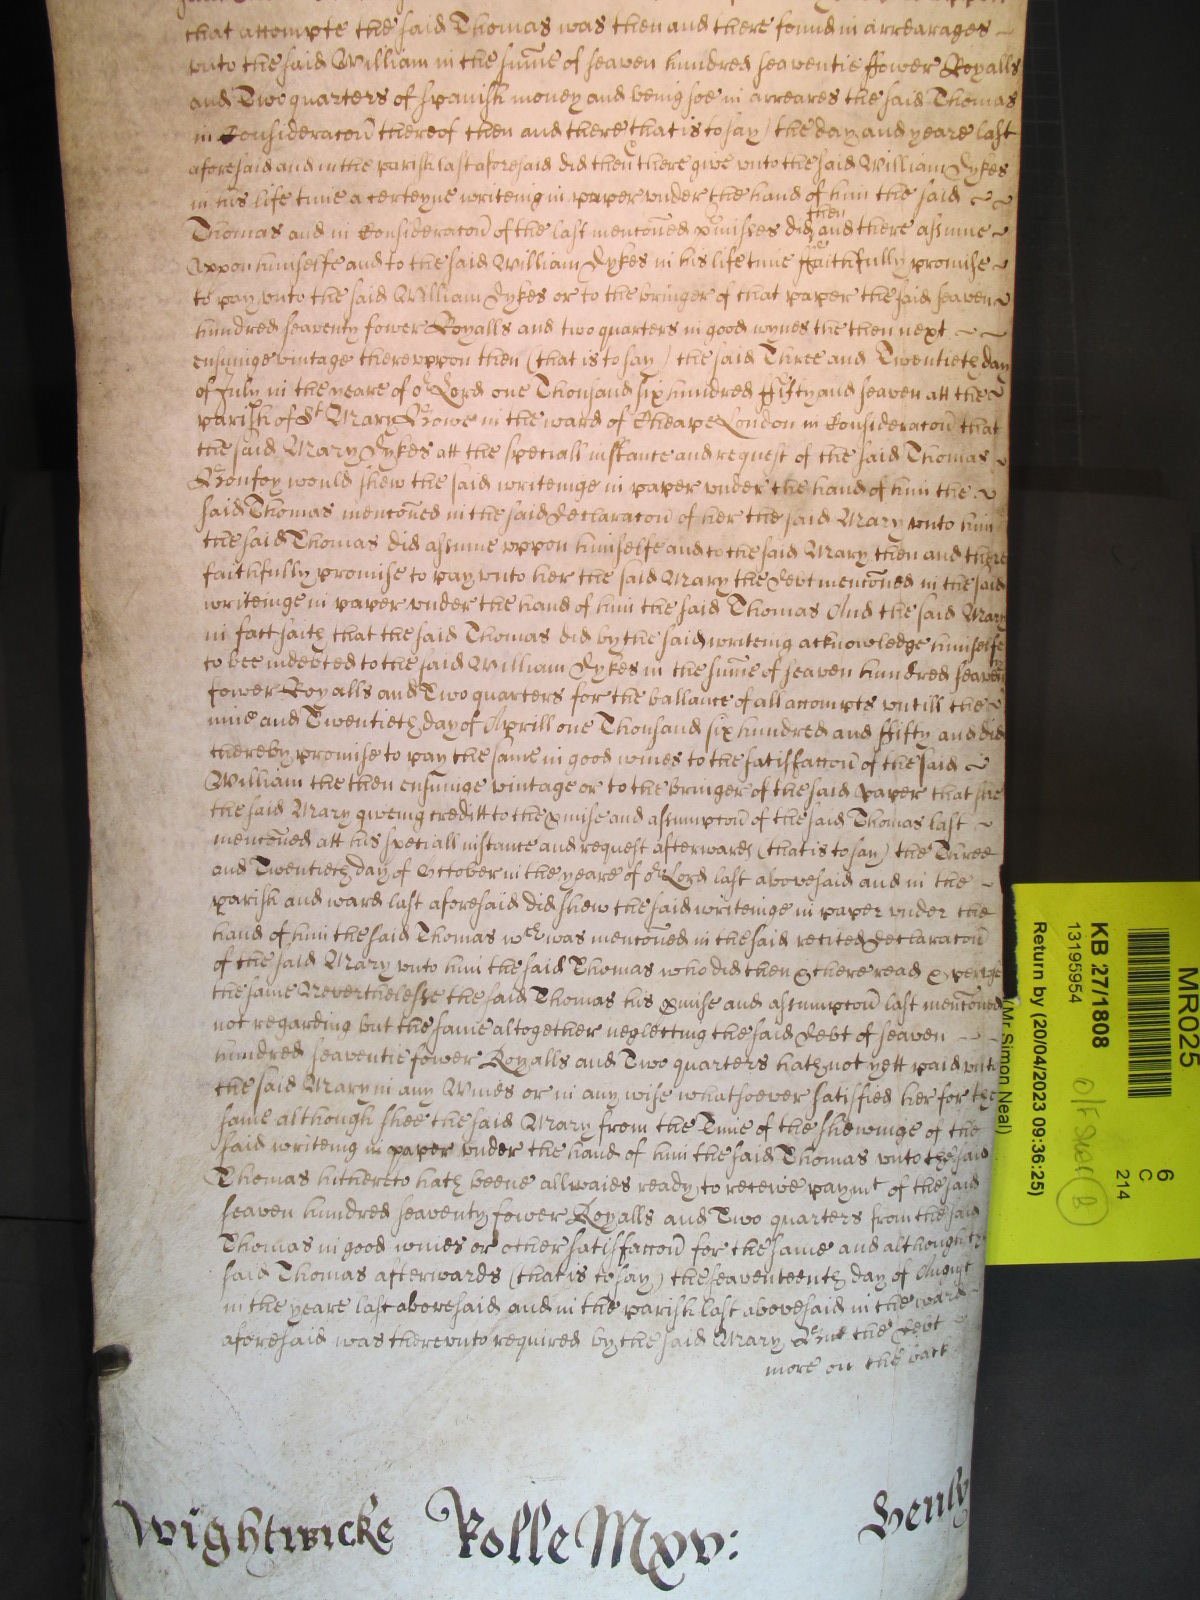 that attompte the said Thomas was then and there found in arrearages
vnto the said William in the sum̄e of seaven hundred seaventie ffower Royalls
and Two quarters of spanish money and being soe in arreares the said Thomas
in Consideracoñ thereof then and there that is to say) the day and yeare last
aforesaid and in the parish last aforesaid did then & there give vnto the said William Dykes
in his life time a certeyne writeing in paper vnder the hand of him the said
Thomas and in Consideracoñ of the last mencōned p̲misses did then and there assume
vppon himselfe and to the said William Dykes in his life time ffaithfully promise
to pay vnto the said William Dykes or to the bringer of that paper the said seaven
hundred seaventy fower Royalls and two quarters in good wynes the then next
ensuinge vintage therevppon then (that is to say) the said Three and Twentieth day
of July in the yeare of or Lord one Thousand six hundred ffifty and seaven att the
parish of St Mary Bowe in the ward of Cheape London in Consideracoñ that
the said Mary Dykes att the speciall instance and request of the said Thomas
Bonfoy would shew the said writeinge in paper vnder the hand of him the
said Thomas mencōned in the said declaracoñ of her the said Mary vnto him
the said Thomas did assume vppon himselfe and to the said Mary then and there
faithfully promise to pay vnto her the said Mary the debt mencōned in the said
writeinge in paper vnder the hand of him the said Thomas And the said Mary
in fact saith that the said Thomas did by the said writeing acknowledge himselfe
to bee indebted to the said William Dykes in the sum̄e of seaven hundred
fower Royalls and Two quarters for the ballance of all accompts vntill the
nine and Twentieth day of Aprill one Thousand six hundred and ffifty and did
thereby promise to pay the same in good wines to the satisfaccoñ of the said
William the then ensuinge vintage or to the bringer of the said paper that she
the said Mary giveing creditt to the p̲mise and assumpcoñ of the said Thomas last
mencōned att his speciall instance and request afterwards (that is to say) the Three
and Twentieth day of October in the yeare of or Lord last abovesaid and in the
parish and ward last aforesaid did shew the said writeinge in paper vnder the
hand of him the said Thomas wch was mencōned in the said recited declaracoñ
of the said Mary vnto him the said Thomas who did then & there read & peruse
the same Neverthelesse the said Thomas his p̲mise and assumpcoñ last mencōned
not regarding but the same altogether neglecting the said debt of seaven
hundred seaventie fower Royalls and Two quarters hath not yett paid vnto
the said Mary in any Wines or in any wise whatsoever satisfied her for the
same although shee the said Mary from the Time of the shewinge of the
said writeing in paper vnder the hand of him the said Thomas vnto the said
Thomas hitherto hath beene allwaies ready to receive paymt of the said
seaven hundred seaventy fower Royalls and Two quarters from the said
Thomas in good wines or other satisfaccoñ for the same and although the
said Thomas afterwards (that is to say) the seaventeenth day of August
in the yeare last abovesaid and in the parish last abovesaid in the ward
aforesaid was therevnto required by the said Mary But the debt
more on the back
Wightwicke Rolle Mxv: Henly
MR025
6
C
214
KB 27/1808
13195954
Return by (20/04/2023 09:36:25)
(Mr Simon Neal)